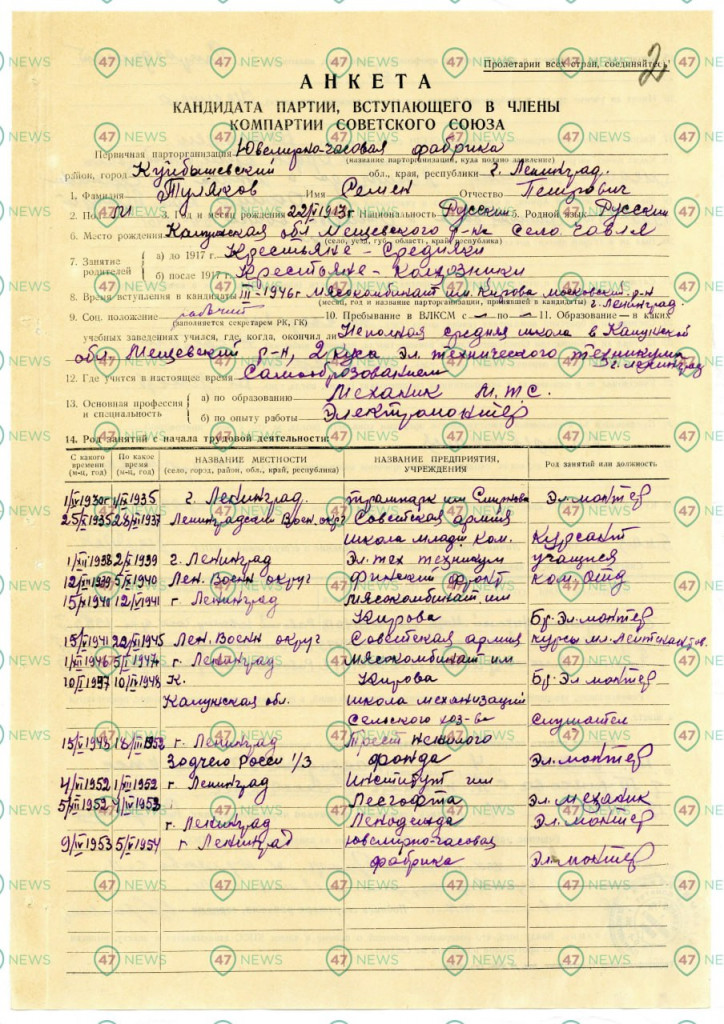 Пролетарии всех стран, соединяйтесь!
2
АНКЕТА
КАНДИДАТА ПАРТИИ, ВСТУПАЮЩЕГО В ЧЛЕНЫ
КОМПАРТИИ СОВЕТСКОГО СОЮЗА
Первичная парторганизация Ювелирно-часовая фабрика
(название парторганизации, куда подано заявление)
район, город Куйбышевский обл., края, республики г. Ленинград.
1. Фамилия Туляков Имя Семен Отчество Петрович
2. Пол М 3. Год и месяц рождения 1913г. 4. Национальность Русский 5. Родной язык Русский
6. Место рождения Калужская обл Мещевского р-на село
(село, уезд, губ., область, край, республика)
7. Занятие родителей
а) до 1917 г. Крестьяне - средняки
б) после 1917 г. Крестьяне - колхозники
8. Время вступления в кандидаты III-1946г Мясокомбинат им. Кирова московский р-н
(месяц, год и название парторганизации, принявшей в кандидаты) г. Ленинград.
9. Соц. положение рабочий 10. Пребывание в ВЛКСМ с — по — 11. Образование — в каких
(заполняется секретарем РК, ГК)
учебных заведениях учился, где, когда, окончил ли Неполная средняя школа в Калужской
обл. Мещевский р-н, 2 курса Эл. технического техникума
г. Ленинград
12. Где учится в настоящее время Самообразованием
13. Основная профессия и специальность
а) по образованию Механик М.Т.С.
б) по опыту работы Электромонтер
14. Род занятий с начала трудовой деятельности:
С какого времени (м-ц, год) По какое время (м-ц, год) НАЗВАНИЕ МЕСТНОСТИ (село, город, район, обл., край, республика) НАЗВАНИЕ ПРЕДПРИЯТИЯ, УЧРЕЖДЕНИЯ Род занятий или должность
1930г 1935 г. Ленинград. трампарк им Смирнова Эл. монтер
1935 1937 Ленинградский Воен. окр Советская армия
школа младш. ком. Курсант
1938 1939 г. Ленинград Эл. тех техникум учащийся
1939 1940 Лен. Воен округ Финский фронт ком. отд
1940 1941 г Ленинград мясокомбинат им
Кирова Бр. Эл. монтер
1941 1945 Лен. Воен округ Советская армия курсы мл. лейтенантов.
1946 1947 г. Ленинград мясокомбинат им
1948 К. Кирова Бр. Эл монтер
Калужская обл. школа механизаций
сельского хоз-ва слушател
1948 1952 г. Ленинград Трест
Зодчего Росси 1/3 фонда Эл. монтер
1952 1952 г Ленинград Институт им
1952 1953 Лесгофта Эл. механик
г. Ленинград Леодежда Эл. монтер
1953 1954 г. Ленинград Ювелирно-часовая
фабрика Эл. монтер
47 NEWS